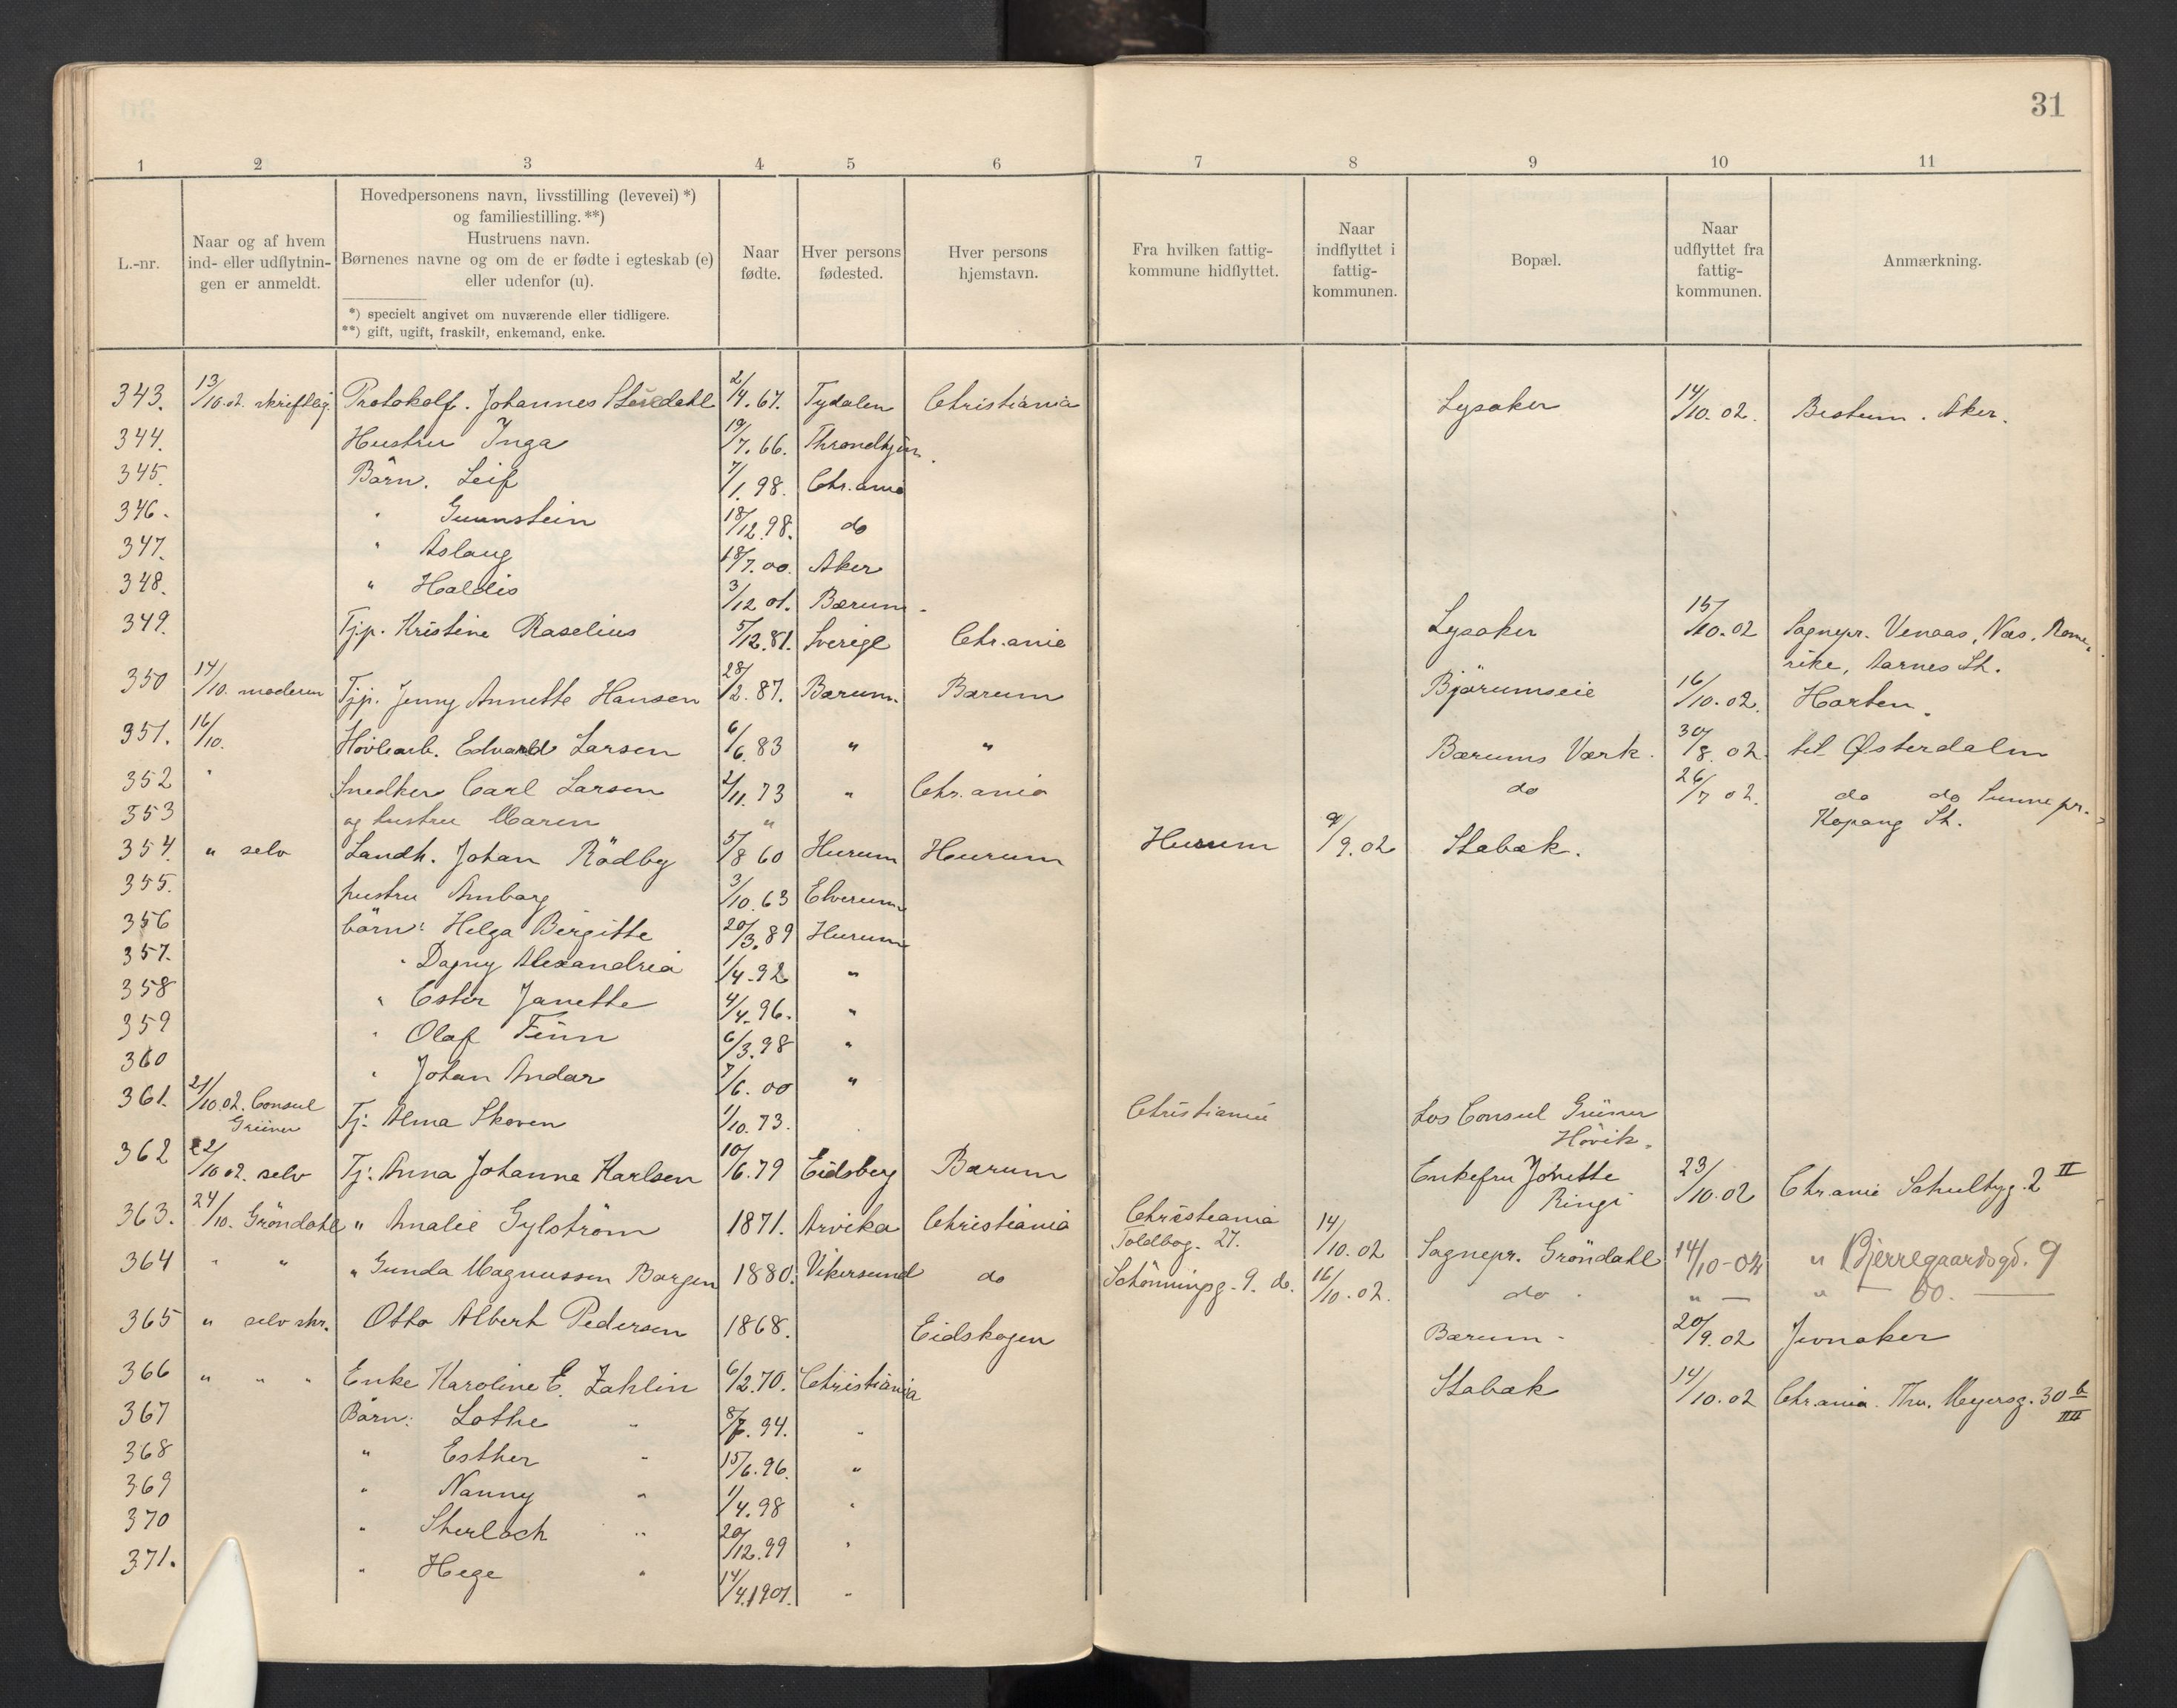 31
1 2 3 4 5 6 7 8 9 10 11
L.-nr.
Naar og af hvem
ind- eller udflytnin-
gen er anmeldt.
Hovedpersonens navn, livsstilling (levevei) *)
og familiestilling. **)
Hustruens navn.
Børnenes navne og om de er fødte i egteskab (e)
eller udenfor (u).
*) specielt angivet om nuværende eller tidligere.
**) gift, ugift, fraskilt, enkemand, enke.
Naar
fødte.
Hver persons
fødested.
Hver persons
hjemstavn.
Fra hvilken fattig-
kommune hidflyttet.
Naar
indflyttet i
fattig-
kommunen.
Bopæl.
Naar
udflyttet fra
fattig-
kommunen.
Anmærkning.
343. 13/10.02. skriftlig. Protokolf. Johannes 2/4.67. Tydalen Christiania Lysaker 14/10.02. Bestum. Aker.
344. Hustru Inga 19/7.66. Throndhjem.
345. Börn. Leif 7/1.98. Chr.ania
346. " Gunnstein 18/12.98. do
347. " Aslaug 18/7.00. Aker
348. " Haldis 3/12 01. Bærum.
349. Tjp. Kristine Raselius 5/12.81. Sverige Chr.ania Lysaker 15/10.02 Sognepr. Venaas, Næs, Rome-
rike, Aarnes St.
350 14/10. moderen Tjp. Jenny Annette Hansen 28/2.87. Bærum. Bærum Bjørumseie 16/10.02. Horten.
351. 16/10. Hövlearb. Edvard Larsen 6/6.83 " " Bærums Værk. 30/8.02. til Østerdalen
352 " Snedker Carl Larsen 2/11.73 " Chr.ania do 26/7 02. do do Sunne pr.
Kopang St.
353 og hustru Maren "
354. " selv Landh. Johan Rödby 5/8 60 Hurum Hurum Hurum 9/9.02 Stabæk.
355. hustru Amborg 3/10.63 Elverum
356 börn: Helga Birgitte 20/3.89 Hurum
357. " Dagny Alexandria 1/4.92 "
358 " Ester Janette 4/4.96. "
359 " Olaf Finn 6/3.98 "
360 " Johan Andar 7/6.00 "
361. 21/10.02. Consul
Grüner Tj: Alma Skoven 1/10.73. Christiania hos Consul Grüner
Hövik.
362 22/10 02. selv Tj: Anna Johanne Karlsen 10/6.79 Eidsberg Bærum Enkefru Jonette
Ringi 23/10.02 Chr.ania Schultzg. 2 II
363. 24/10. Gröndahl " Amalie Gylström 1871. Arvika Christiania Christiania
Toldbog. 27. 14/10.02 Sognepr. Gröndahl 14/10-02 " Bjerregaardsgd. 9
364 " " " Gunda Magnussen Borgen 1880. Vikersund do Schönningsg. 9. do. 16/10.02. do " — " — do. —
365 " selv skr. Otto Albert Pedersen 1868. Eidskogen Bærum 20/9.02 Jevnaker
366 " " " Enke Karoline E. Zahlin 6/2.70. Christiania Stabæk 14/10.02 Chr.ania. Thv. Meyersg. 30 b
III
367 Börn: Lothe " 8/7.94. "
368 " Esther " 15/6.96. "
369 " Nanny " 1/4.98 "
370 " " 20/12.99 "
371. " Hege " 14/4.1901. "